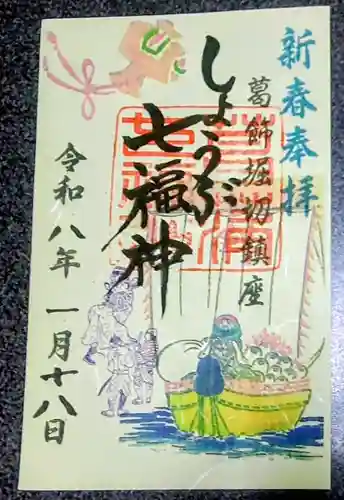 新春奉拝
葛飾堀切鎮座
しょうぶ七福神
令和八年 一月十八日